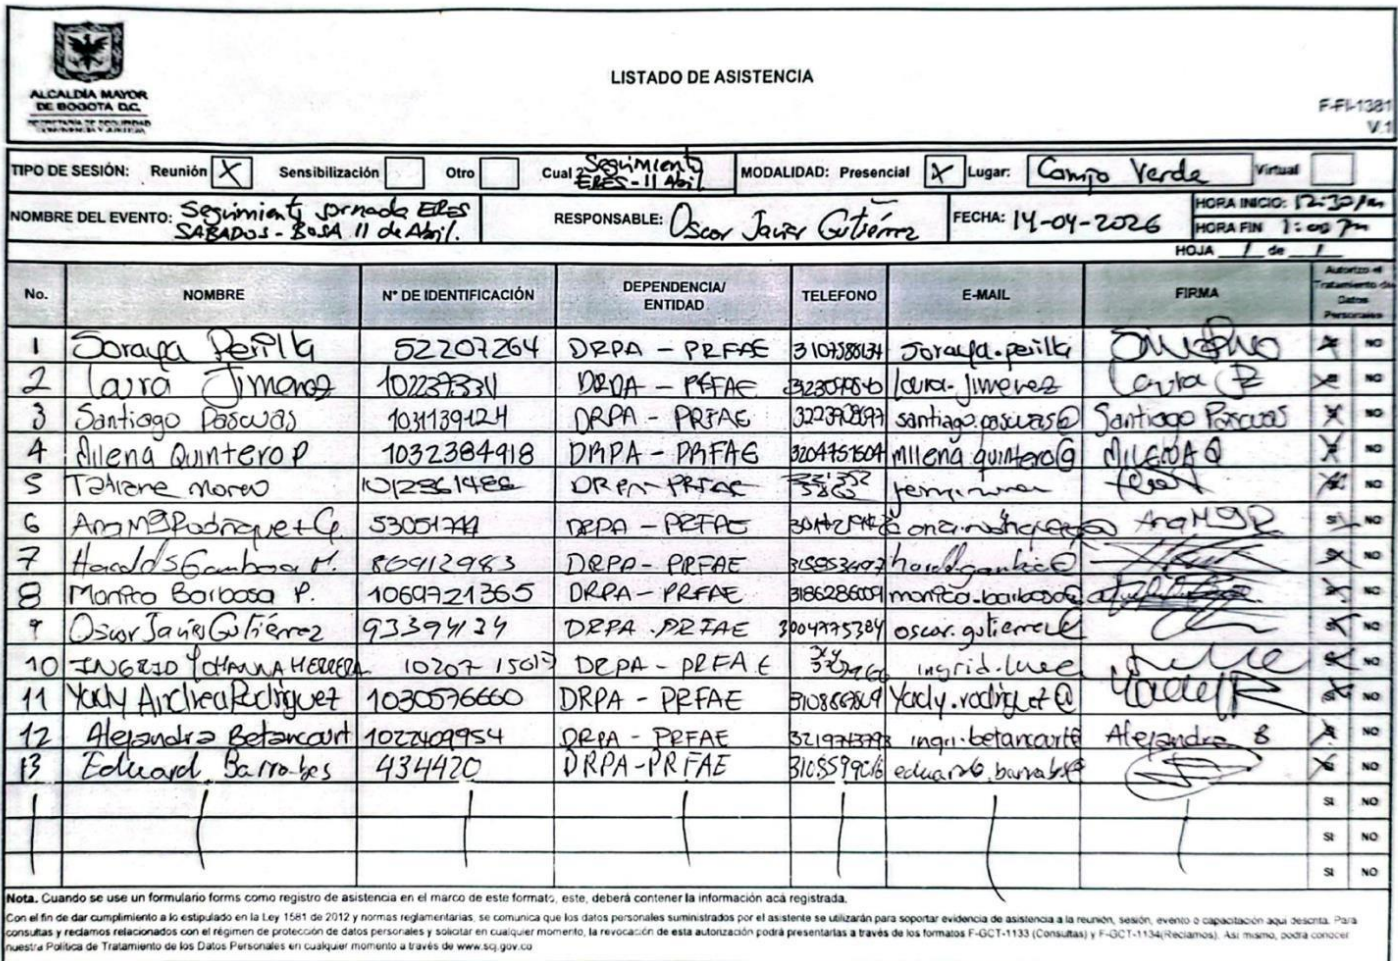 ALCALDÍA MAYOR
DE BOGOTÁ D.C.
SECRETARÍA DE SEGURIDAD
CONVIVENCIA Y JUSTICIA
LISTADO DE ASISTENCIA
F-FI-1381
V.1
TIPO DE SESIÓN: Reunión X Sensibilización Otro Cual? Seguimiento ERES - 11 Abril MODALIDAD: Presencial X Lugar: Campo Verde Virtual
NOMBRE DEL EVENTO: Seguimiento jornada ERES SABADOS - BOSA 11 de Abril. RESPONSABLE: Oscar Javier Gutiérrez FECHA: 14-04-2026 HORA INICIO: 12:30 pm
HORA FIN 1:00 pm
HOJA 1 de 1
No. NOMBRE N° DE IDENTIFICACIÓN DEPENDENCIA/ ENTIDAD TELEFONO E-MAIL FIRMA Autorizo el Tratamiento de Datos Personales
1 Soraya Perilla 52207264 DRPA - PRFAE soraya.perilla NO
2 Laura Jimenez DRPA - PRFAE laura.jimenez Laura NO
3 Santiago Pascuas 1031139124 DRPA - PRFAE santiago.pascuas@ Santiago Pascuas NO
4 Milena Quintero P 1032384918 DRPA - PRFAE 3204751504 milena.quintero@ MILENA Q NO
5 DRPA - PRFAE NO
6 DRPA - PRFAE SI NO
7 Harold S Gamboa 80912983 DRPA - PRFAE NO
8 Monica Barbosa P. 1069721365 DRPA - PRFAE 3186286009 monica.barbosa@ NO
9 Oscar Javier Gutiérrez DRPA - PRFAE 3004775384 NO
10 INGRID YOHANNA HERRERA DRPA - PRFAE NO
11 Yady Andrea Rodriguez 1030576660 DRPA - PRFAE Yady.rodriguez@ NO
12 Alejandra Betancourt 1022409954 DRPA - PRFAE Alejandra B NO
13 Eduard Barrabes 434420 DRPA - PRFAE NO
SI NO
SI NO
SI NO
Nota. Cuando se use un formulario forms como registro de asistencia en el marco de este formato, este, deberá contener la información acá registrada.
Con el fin de dar cumplimiento a lo estipulado en la Ley 1581 de 2012 y normas reglamentarias, se comunica que los datos personales suministrados por el asistente se utilizarán para soportar evidencia de asistencia a la reunión, sesión, evento o capacitación aquí descrita. Para
consultas y reclamos relacionados con el régimen de protección de datos personales y solicitar en cualquier momento, la revocación de esta autorización podrá presentarlas a través de los formatos F-GCT-1133 (Consultas) y F-GCT-1134(Reclamos). Así mismo, podrá conocer
nuestra Política de Tratamiento de los Datos Personales en cualquier momento a través de www.scj.gov.co